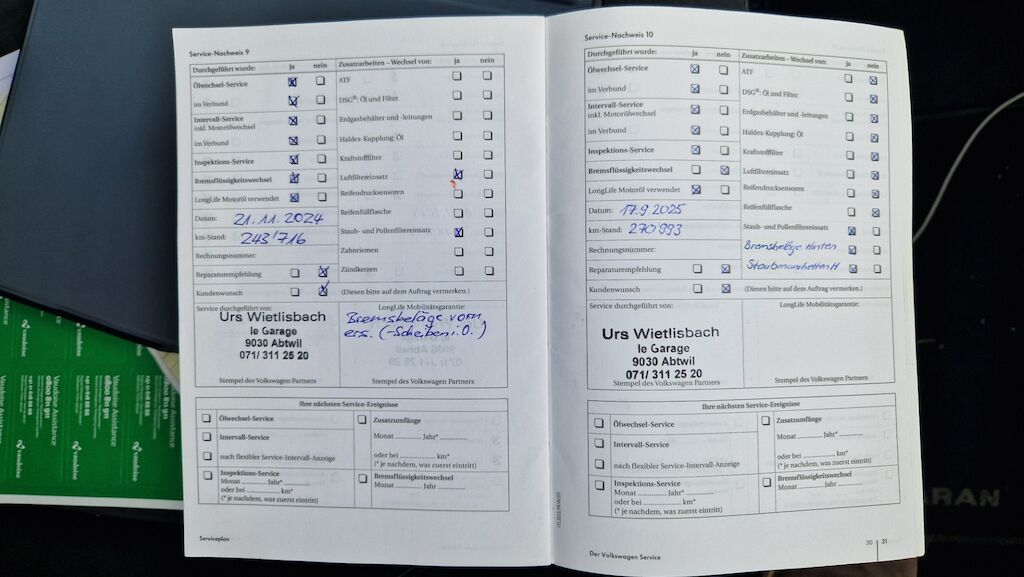 Service-Nachweis 9
Durchgeführt wurde: ja nein
Ölwechsel-Service
im Verbund
Intervall-Service
inkl. Motorölwechsel
im Verbund
Inspektions-Service
Bremsflüssigkeitswechsel
LongLife Motoröl verwendet
Datum: 21.11.2024
km-Stand: 243'716
Rechnungsnummer:
Reparaturempfehlung
Kundenwunsch
Zusatzarbeiten – Wechsel von: ja nein
ATF
DSG®: Öl und Filter
Erdgasbehälter und -leitungen
Haldex-Kupplung: Öl
Kraftstofffilter
Luftfiltereinsatz
Reifendrucksensoren
Reifenfüllflasche
Staub- und Pollenfiltereinsatz
Zahnriemen
Zündkerzen
(Diesen bitte auf dem Auftrag vermerken.)
Service durchgeführt von:
Urs Wietlisbach
le Garage
9030 Abtwil
071/ 311 25 20
Stempel des Volkswagen Partners
LongLife Mobilitätsgarantie:
Bremsbeläge vorn
ers. (-Scheiben i.O.)
Stempel des Volkswagen Partners
Ihre nächsten Service-Ereignisse
Ölwechsel-Service
Intervall-Service
nach flexibler Service-Intervall-Anzeige
Inspektions-Service
Monat ............ Jahr* ............
oder bei ............ km*
(* je nachdem, was zuerst eintritt)
Zusatzumfänge
Monat ............ Jahr* ............
oder bei ............ km*
(* je nachdem, was zuerst eintritt)
Bremsflüssigkeitswechsel
Monat ............ Jahr ............
Serviceplan
Service-Nachweis 10
Durchgeführt wurde: ja nein
Ölwechsel-Service
im Verbund
Intervall-Service
inkl. Motorölwechsel
im Verbund
Inspektions-Service
Bremsflüssigkeitswechsel
LongLife Motoröl verwendet
Datum: 17.9.2025
km-Stand: 270'993
Rechnungsnummer:
Reparaturempfehlung
Kundenwunsch
Zusatzarbeiten – Wechsel von: ja nein
ATF
DSG®: Öl und Filter
Erdgasbehälter und -leitungen
Haldex-Kupplung: Öl
Kraftstofffilter
Luftfiltereinsatz
Reifendrucksensoren
Reifenfüllflasche
Staub- und Pollenfiltereinsatz
Bremsbeläge hinten
Staubmanchetten H
(Diesen bitte auf dem Auftrag vermerken.)
Service durchgeführt von:
Urs Wietlisbach
le Garage
9030 Abtwil
071/ 311 25 20
Stempel des Volkswagen Partners
LongLife Mobilitätsgarantie:
Stempel des Volkswagen Partners
Ihre nächsten Service-Ereignisse
Ölwechsel-Service
Intervall-Service
nach flexibler Service-Intervall-Anzeige
Inspektions-Service
Monat ............ Jahr* ............
oder bei ............ km*
(* je nachdem, was zuerst eintritt)
Zusatzumfänge
Monat ............ Jahr* ............
oder bei ............ km*
(* je nachdem, was zuerst eintritt)
Bremsflüssigkeitswechsel
Monat ............ Jahr ............
Der Volkswagen Service
30 31
Vaudoise Assistance
0800 811 911
vaudoise
ARAN